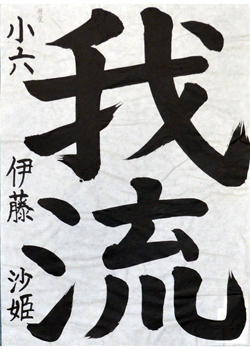 我流
小六 伊藤 沙姫